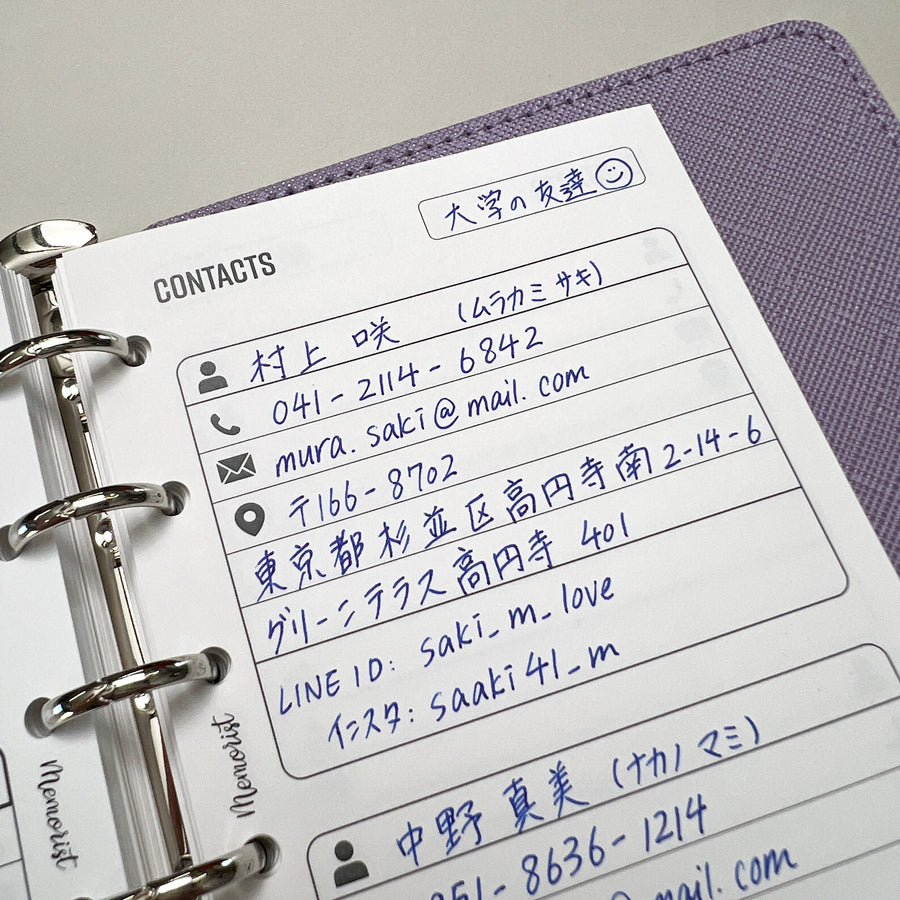 大学の友達
CONTACTS
村上 咲 (ムラカミ サキ)
041-2114-6842
mura.saki@mail.com
〒166-8702
東京都杉並区高円寺南2-14-6
グリーンテラス高円寺 401
LINE ID: saki_m_love
インスタ: saaki41_m
Memorist
Memorist
中野 真美 (ナカノ マミ)
051-8636-1214
@mail.com